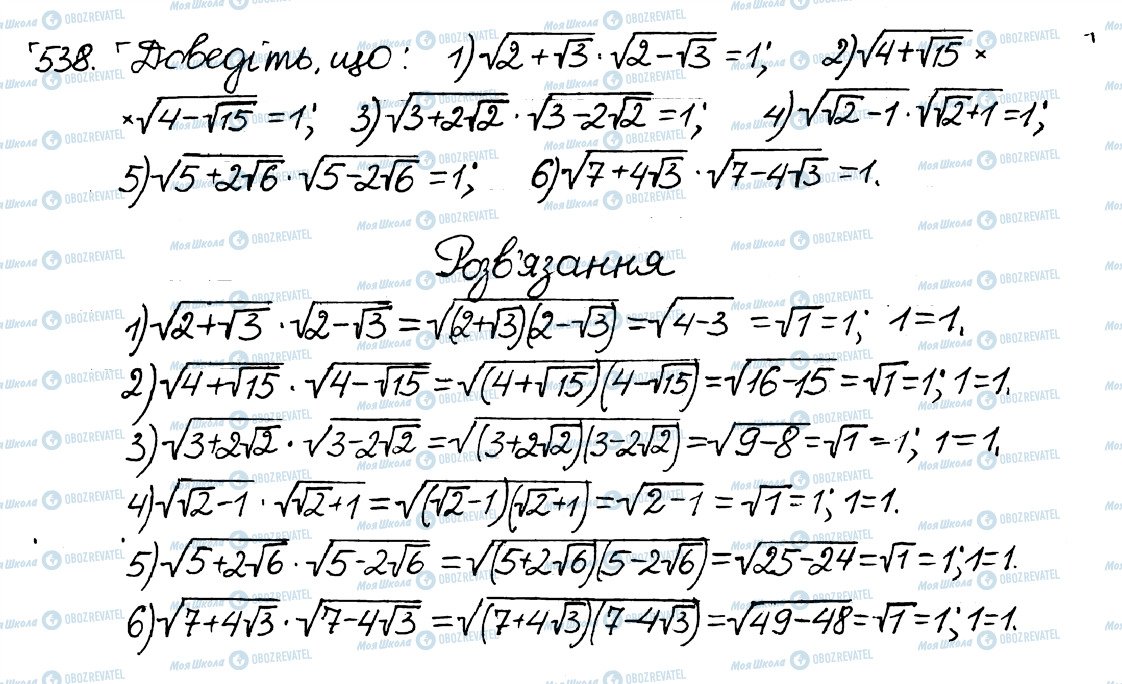 538. Доведіть, що: 1) √(2+√3) · √(2-√3) = 1; 2) √(4+√15) ×
× √(4-√15) = 1; 3) √(3+2√2) · √(3-2√2) = 1; 4) √(√2-1) · √(√2+1) = 1;
5) √(5+2√6) · √(5-2√6) = 1; 6) √(7+4√3) · √(7-4√3) = 1.
Розв'язання
1) √(2+√3) · √(2-√3) = √((2+√3)(2-√3)) = √(4-3) = √1 = 1; 1=1.
2) √(4+√15) · √(4-√15) = √((4+√15)(4-√15)) = √(16-15) = √1 = 1; 1=1.
3) √(3+2√2) · √(3-2√2) = √((3+2√2)(3-2√2)) = √(9-8) = √1 = 1; 1=1.
4) √(√2-1) · √(√2+1) = √((√2-1)(√2+1)) = √(2-1) = √1 = 1; 1=1.
5) √(5+2√6) · √(5-2√6) = √((5+2√6)(5-2√6)) = √(25-24) = √1 = 1; 1=1.
6) √(7+4√3) · √(7-4√3) = √((7+4√3)(7-4√3)) = √(49-48) = √1 = 1; 1=1.
Моя Школа OBOZREVATEL